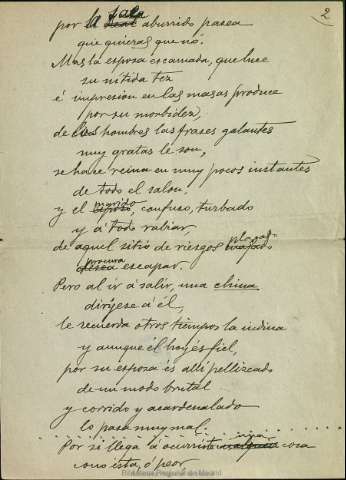 2
por la sala aburrido pasea
que quieras que nó.
Mas la esposa escamada, que luce
su nítida tez
é impresion en las masas produce
por su morbidez,
de los hombres las frases galantes
muy gratas le son,
se hace reina en muy pocos instantes
de todo el salon.
y el marido, confuso, turbado
y á todo rabiar,
de aquel sitio de riesgos plagado
procura escapar.
Pero al ir á salir, una china
dirígese á él,
le recuerda otros tiempos la indina
y aunque él hoy és fiel,
por su esposa és allí pellizcado
de un modo brutal
y corrido y acardenalado
lo pasa muy mal.
Por si llega la
cosa
como ésta, ó peor
Biblioteca Regional de Madrid